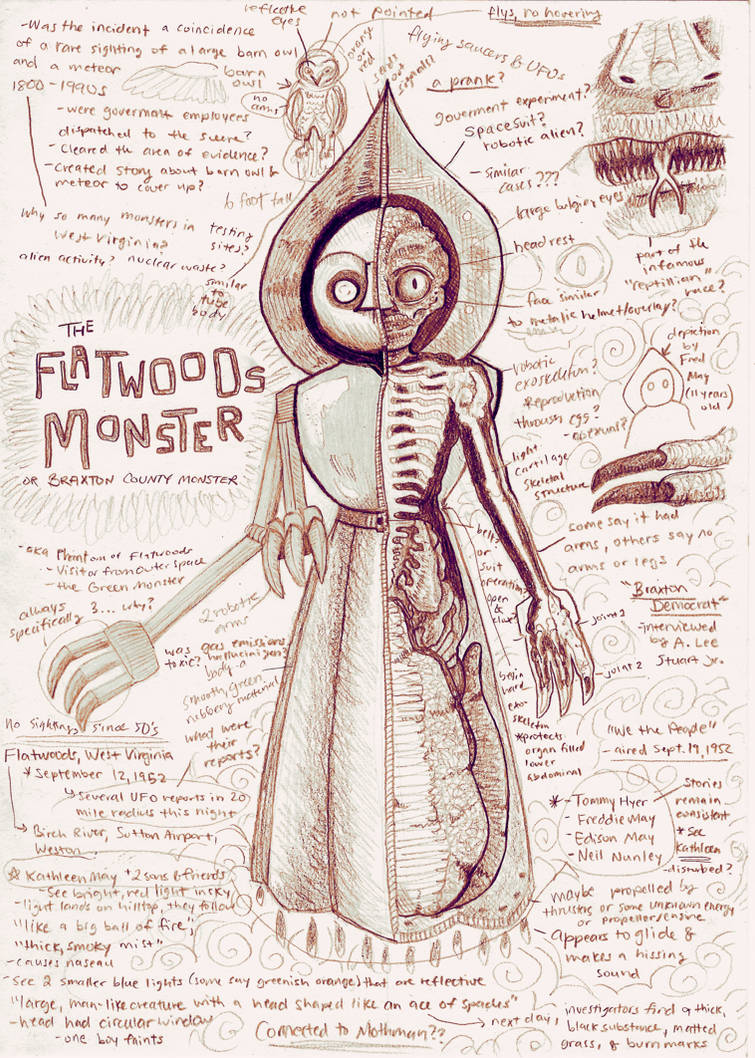 -Was the incident a coincidence
of a rare sighting of a large barn owl
and a meteor
1800-1990s
-were goverment employees
dispatched to the scene?
-Cleared the area of evidence?
-Created story about barn owl &
meteor to cover up?
Why so many monsters in
West Virginia?
alien activity? nuclear waste?
testing
sites?
similar
to tube
body
6 foot tall
barn
owl
no
arms
reflective
eyes
not pointed
flys, no hovering
orange
or
red
sends
out
signals?
flying saucers & UFOs
a prank?
goverment experiment?
spacesuit?
robotic alien?
-similar
cases???
large bulging eyes
head rest
face similar
to metallic helmet/overlay?
part of the
infamous
"reptillian"
race?
depiction
by
Fred
May
(11 years)
old
THE
FLATWOODS
MONSTER
OR BRAXTON COUNTY MONSTER
robotic
exoskeleton?
Reproduction
through egg?
-asexual?
light
cartilage
skeletal
structure
some say it had
arms, others say no
arms or legs
"Braxton
Democrat"
-interviewed
by A. Lee
Stuart Jr.
-aka Phantom of Flatwoods
-Visitor from Outer Space
-the Green Monster
always
specifically
3... why?
2 robotic
arms
was gas emissions
toxic? hallucinigen?
body-a
smooth, green,
rubbery material
what were
their
reports?
belt?
or
suit
operation?
open &
close
joint 1
joint 2
begin
hard
exo-
skeleton
*protects
organ filled
lower
abdominal
"We the People"
-aired Sept. 19, 1952
No sightings since 50's
Flatwoods, West Virginia
*September 12, 1952
Several UFO reports in 20
mile radius this night
Birch River, Sutton Airport,
Weston
*-Tommy Hyer
-Freddie May
-Edison May
-Neil Nunley
Stories
remain
consistent
*see
Kathleen
-disturbed?
*Kathleen May + 2 sons & friends
-See bright, red light in sky
-light lands on hilltop, they follow
"like a big ball of fire",
"thick, smoky mist"
-causes naseau
-see 2 smaller blue lights (some say greenish orange) that are reflective
"large, man-like creature with a head shaped like an ace of spades"
-head had circular window
-one boy faints
Connected to Mothman??
maybe propelled by
thrusters or some unknown energy
or propeller/engine
appears to glide &
makes a hissing
sound
next day, investigators find a thick,
black substance, matted
grass, & burn marks